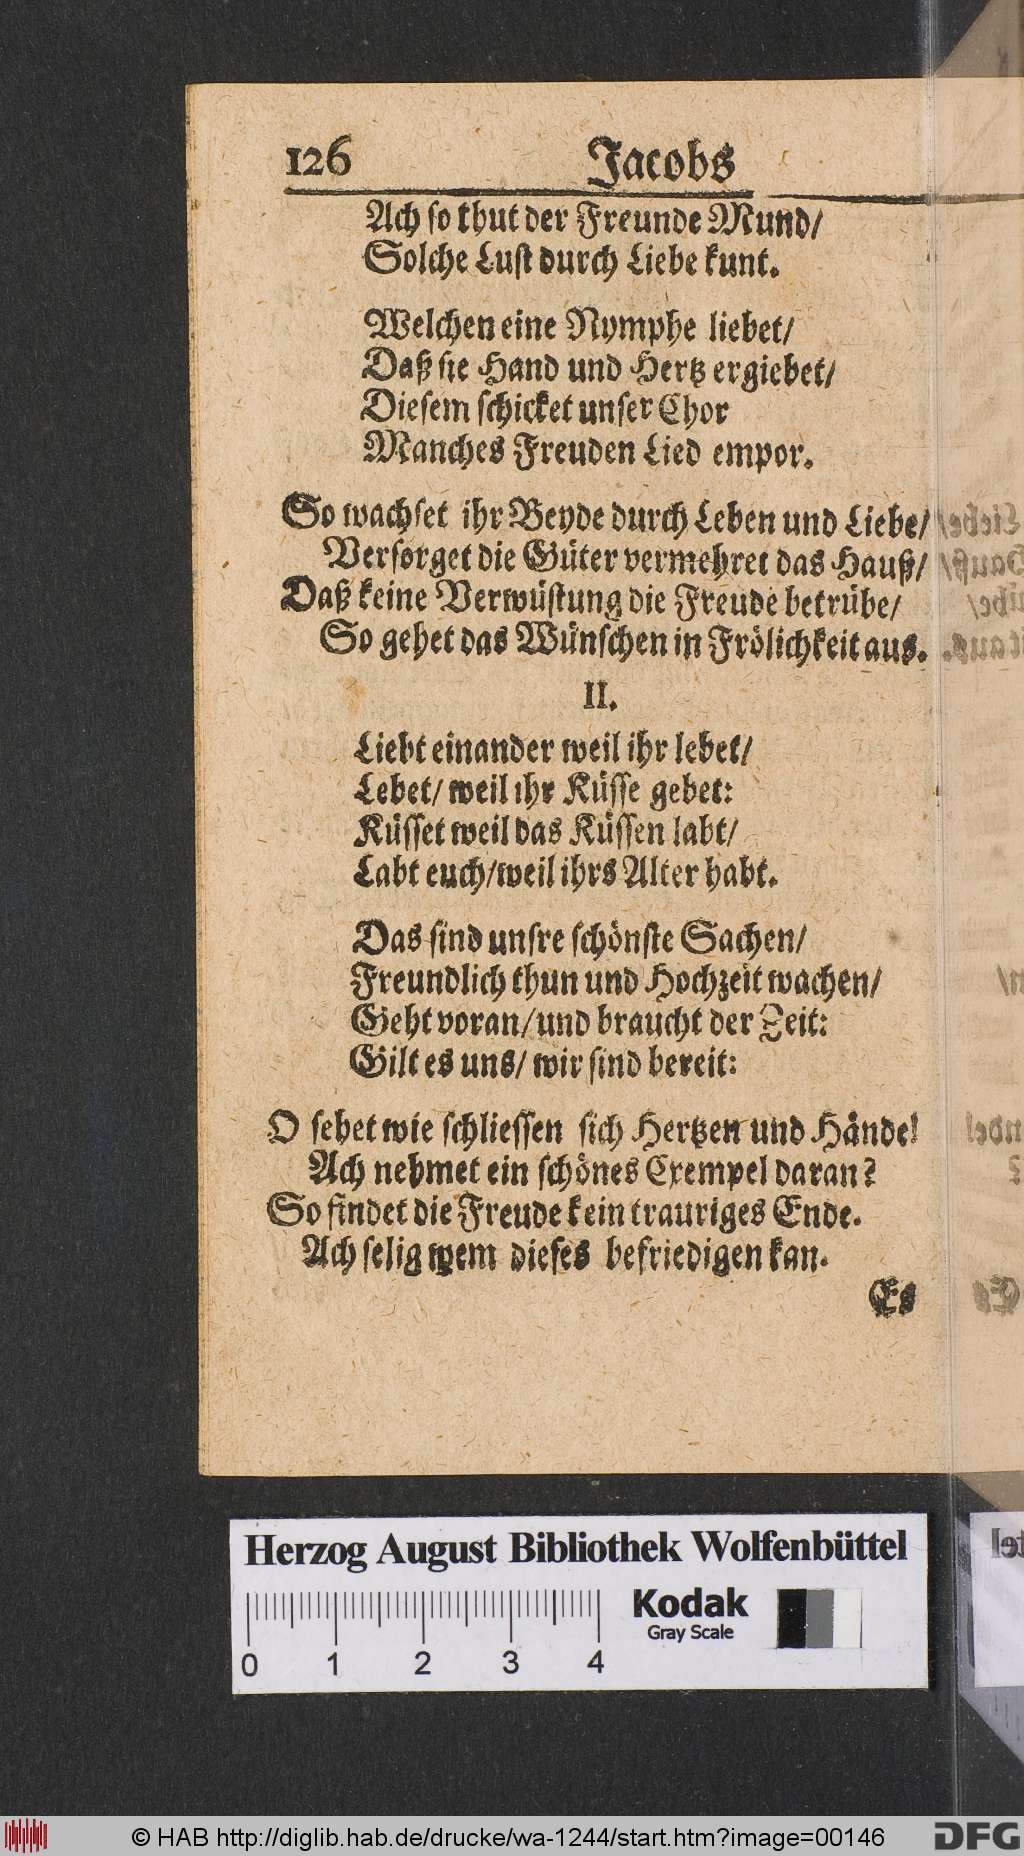 126 Jacobs
Ach so thut der Freunde Mund/
Solche Lust durch Liebe kunt.
Welchen eine Nymphe liebet/
Daß sie Hand und Hertz ergiebet/
Diesem schicket unser Chor
Manches Freuden Lied empor.
So wachset ihr Beyde durch Leben und Liebe/
Versorget die Güter vermehret das Hauß/
Daß keine Verwüstung die Freude betrübe/
So gehet das Wünschen in Frölichkeit aus.
II.
Liebt einander weil ihr lebet/
Lebet/ weil ihr Küsse gebet:
Küsset weil das Küssen labt/
Labt euch/ weil ihrs Alter habt.
Das sind unsre schönste Sachen/
Freundlich thun und Hochzeit wachen/
Geht voran/ und braucht der Zeit:
Gilt es uns/ wir sind bereit:
O sehet wie schliessen sich Hertzen und Hände!
Ach nehmet ein schönes Exempel daran?
So findet die Freude kein trauriges Ende.
Ach selig wem dieses befriedigen kan.
Es
Herzog August Bibliothek Wolfenbüttel
Kodak
Gray Scale
0 1 2 3 4
© HAB http://diglib.hab.de/drucke/wa-1244/start.htm?image=00146
DFG